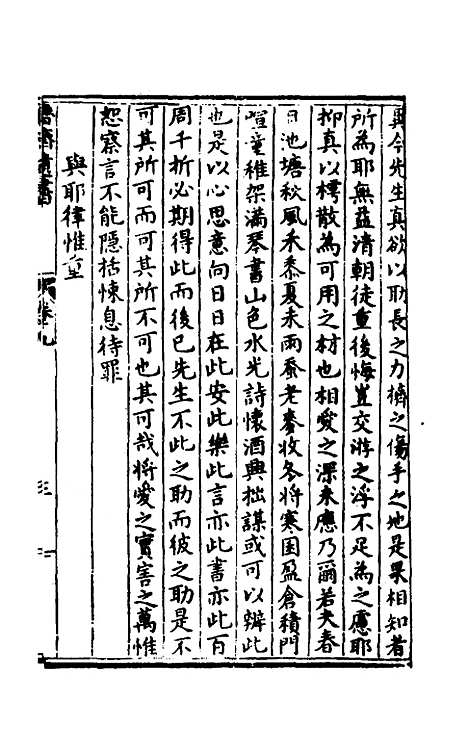 與今先生真欲以助長之力擠之傷手之地是果相知者
所為耶無益清朝徒重後悔豈交游之浮不足為之慮耶
抑真以樗散為可用之材也相愛之深未應乃爾若夫春
日池塘秋風禾黍夏未雨蚕老麥收冬將寒囷盈倉積門
喧童稚架滿琴書山色水光詩懷酒興拙謀或可以辦此
也是以心思意向日日在此安此樂此言亦此書亦此百
周千折必期得此而後已先生不此之助而彼之助是不
可其所可而可其所不可也其可哉將愛之實害之萬惟
恕察言不能隱括悚息待罪
與耶律惟重
魯齋遺書
卷九